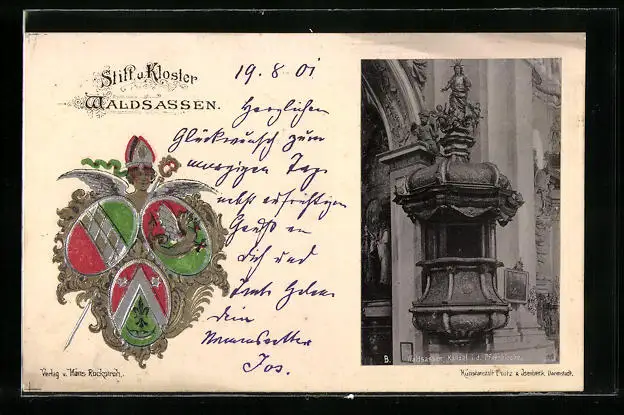 Stift u. Kloster
WALDSASSEN.
19. 8. 01
Herzlichen
Glückwunsch zum
morgigen Tag
nebst aufrichtigen
Gruß an
Dich und
dein
Jos.
B. Waldsassen, Kanzel i. d. Pfarrkirche.
Verlag v. Hans Ruckstroh.
Kunstanstalt Lautz & Isenbeck, Darmstadt.